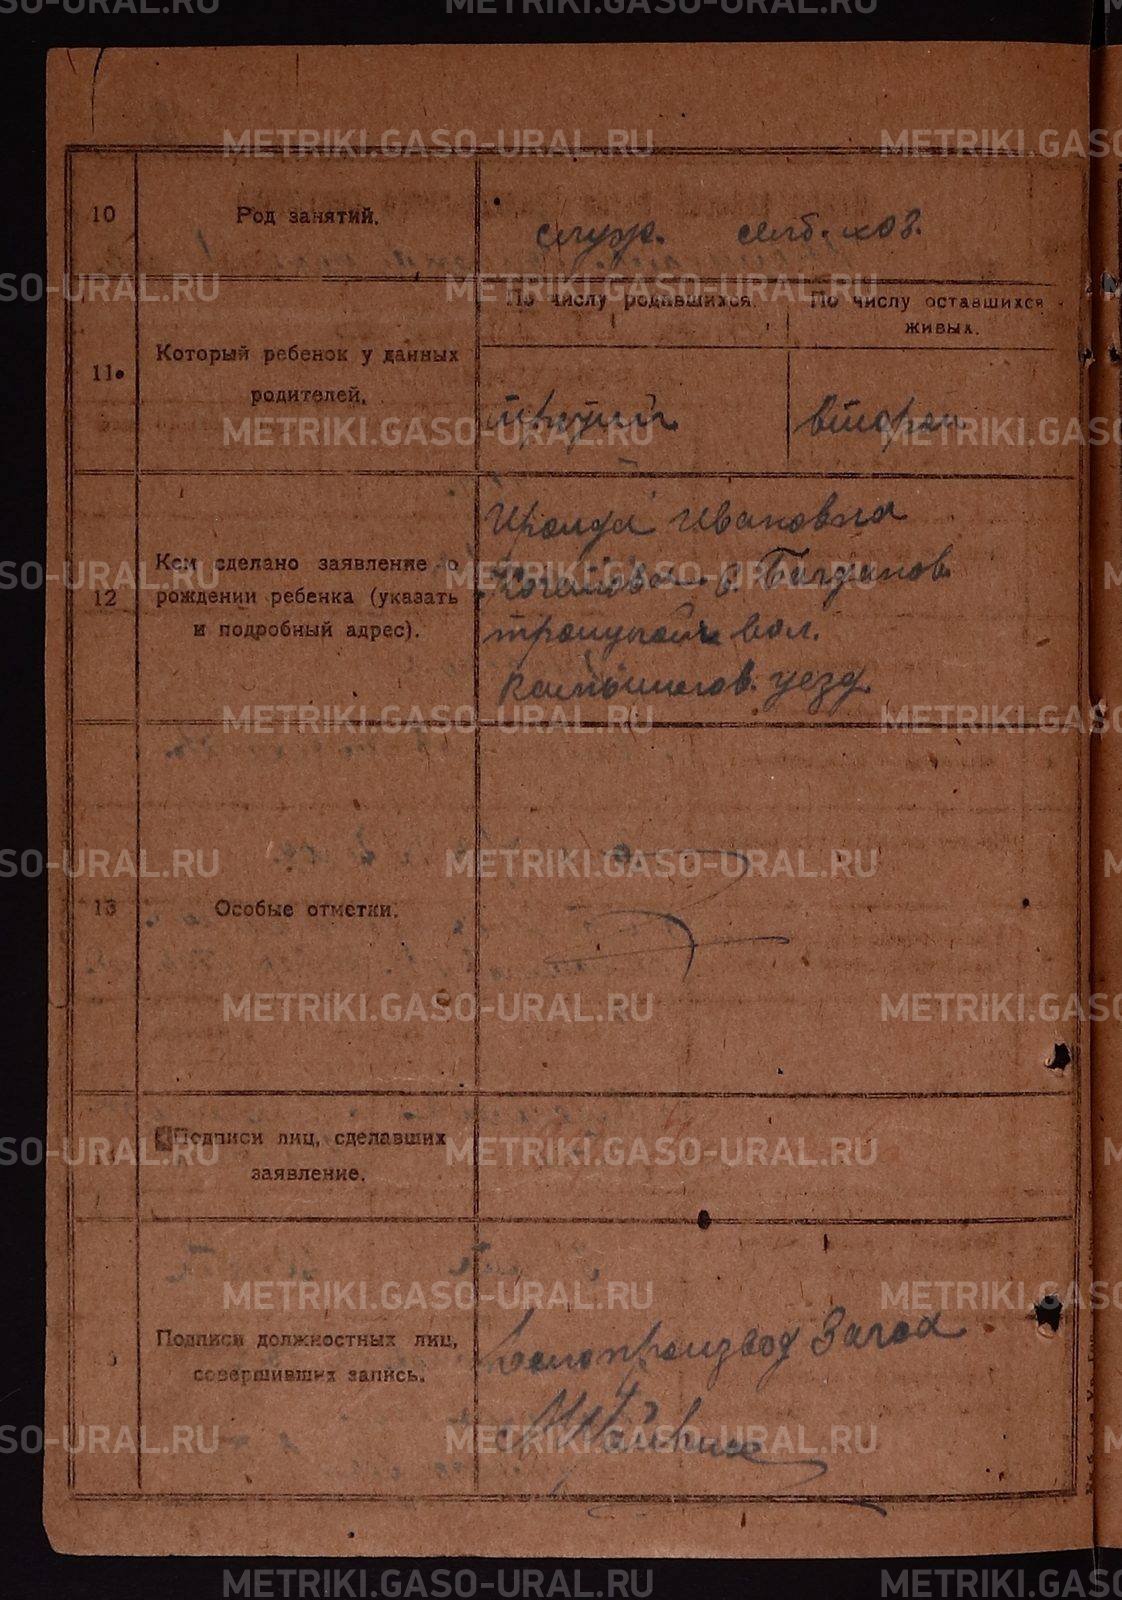 METRIKI.GASO-URAL.RU
10
Род занятий.
служ. сельб. хоз.
11.
Который ребенок у данных
родителей.
По числу родившихся.
По числу оставшихся
живых.
третий
второй
12
Кем сделано заявление о
рождении ребенка (указать
и подробный адрес).
Ираида Ивановна
с. Богданов.
троицкой вол.
Камышлов. уезд
13
Особые отметки.
Подписи лиц, сделавших
заявление.
Подписи должностных лиц,
совершивших запись.
Делопроизвод Загса